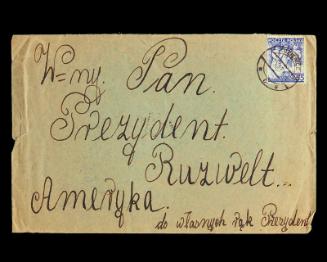 POCZTA POLSKA
W=ny. Pan.
Prezydent.
Ruzwelt...
Ameryka.
do własnych rąk Prezydent